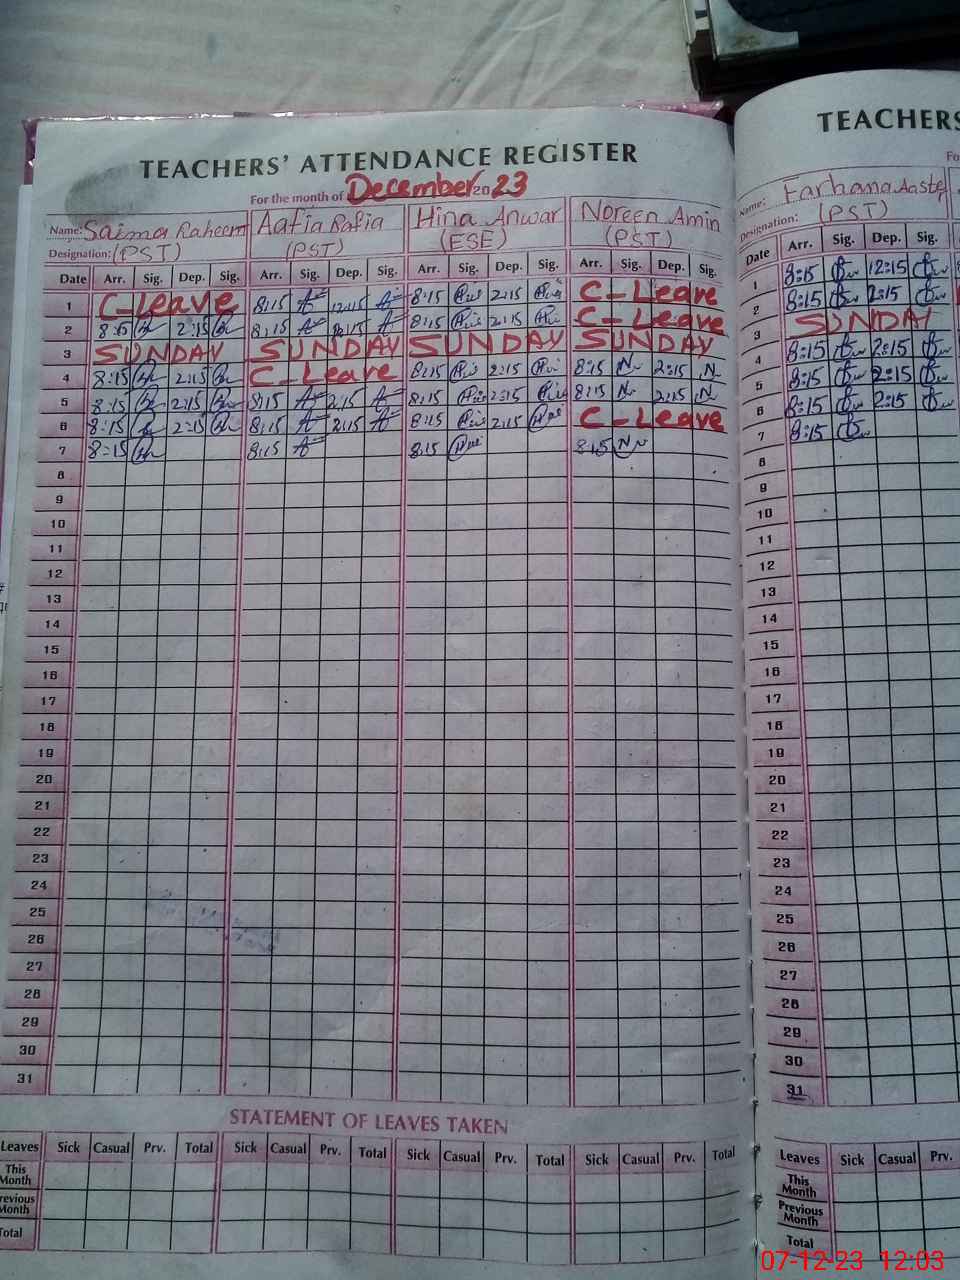 TEACHERS' ATTENDANCE REGISTER
For the month of December 2023
Name: Saima Raheem Aafia Rafia Hina Anwar Noreen Amin
Designation: (PST) (PST) (ESE) (PST)
Date Arr. Sig. Dep. Sig. Arr. Sig. Dep. Sig. Arr. Sig. Dep. Sig. Arr. Sig. Dep. Sig.
1 C-Leave 8:15 12:15 8:15 2:15 C-Leave
2 8:15 2:15 8:15 2:15 8:15 2:15 C-Leave
3 SUNDAY SUNDAY SUNDAY SUNDAY
4 8:15 2:15 C-Leave 8:15 2:15 8:15 2:15
5 8:15 2:15 8:15 2:15 8:15 2:15 8:15 2:15
6 8:15 2:15 8:15 2:15 8:15 2:15 C-Leave
7 8:15 8:15 8:15 8:15
8
9
10
11
12
13
14
15
16
17
18
19
20
21
22
23
24
25
26
27
28
29
30
31
STATEMENT OF LEAVES TAKEN
Leaves Sick Casual Prv. Total Sick Casual Prv. Total Sick Casual Prv. Total Sick Casual Prv. Total
This Month
Previous Month
Total
TEACHERS
Fo
Name: Farhana
Designation: (PST)
Date Arr. Sig. Dep. Sig.
1 8:15 12:15
2 8:15 2:15
3 SUNDAY
4 8:15 2:15
5 8:15 2:15
6 8:15 2:15
7 8:15
8
9
10
11
12
13
14
15
16
17
18
19
20
21
22
23
24
25
26
27
28
29
30
31
Leaves Sick Casual Prv.
This Month
Previous Month
Total
07-12-23 12:03